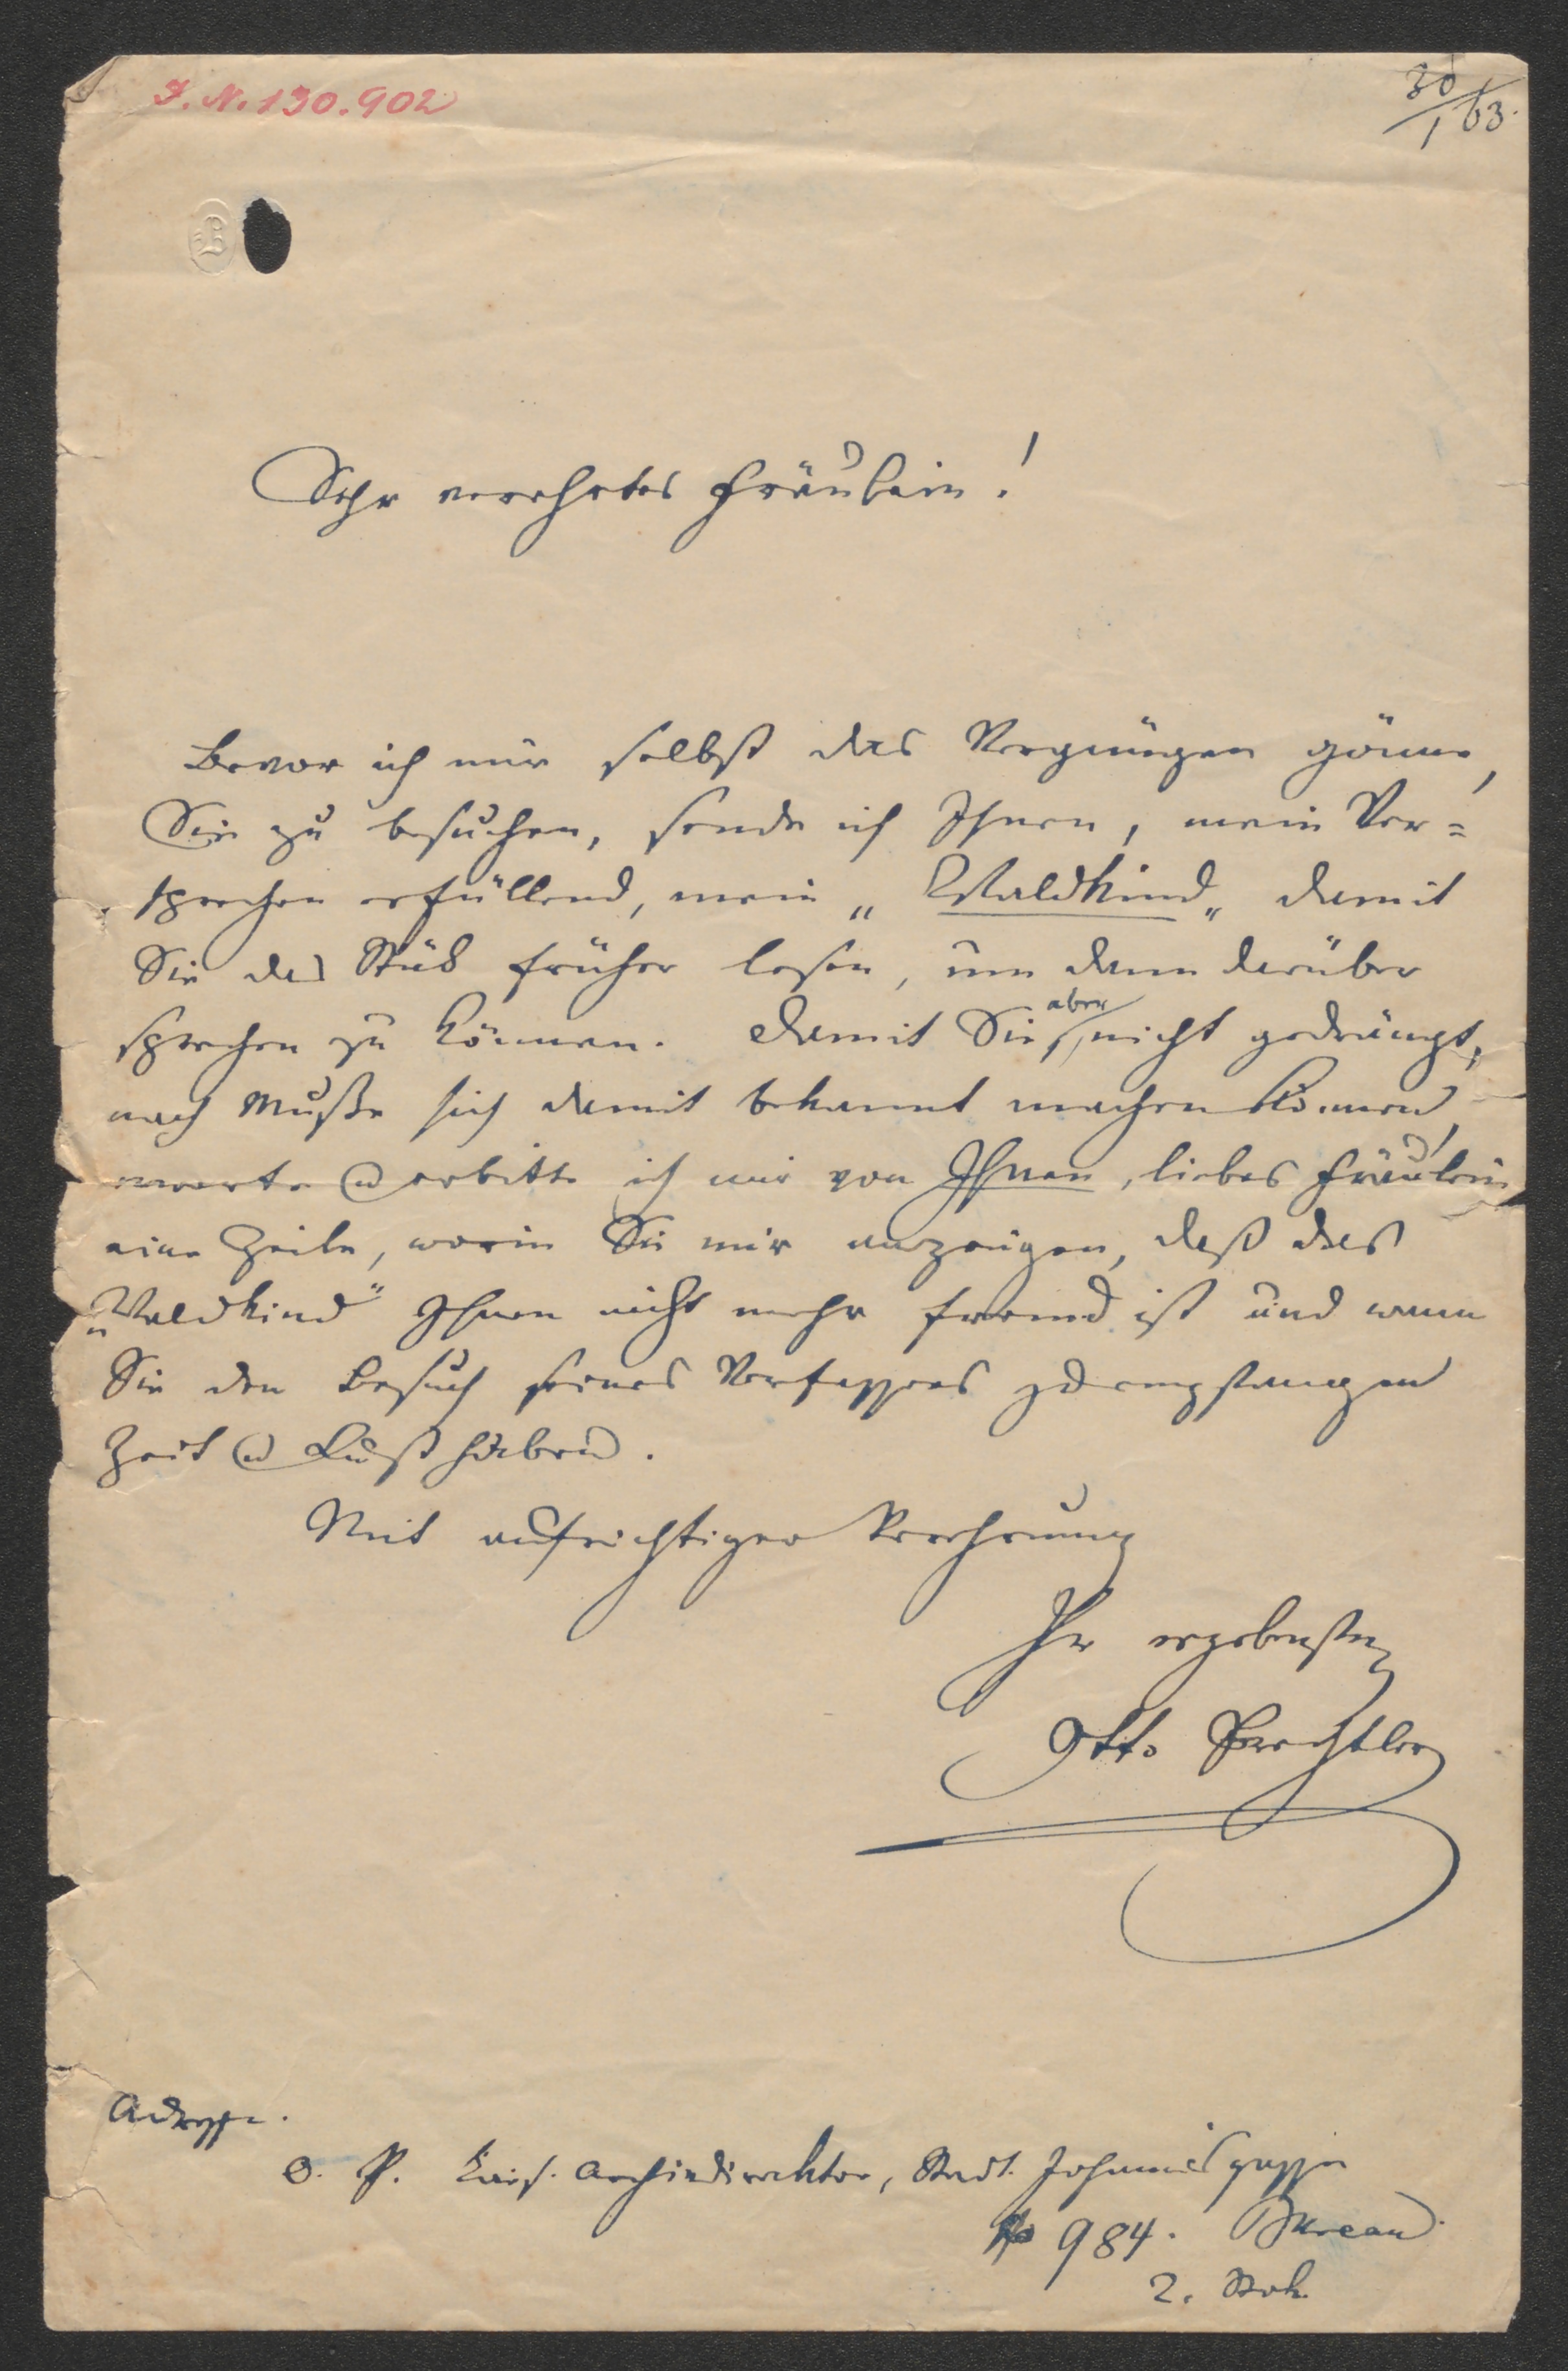 I. N. 130.902
30/1 63.
B
Sehr verehrtes Fräulein!
Bevor ich mir selbst das Vergnügen gönne,
Sie zu besuchen, sende ich Ihnen, mein Ver=
sprechen erfüllend, mein „Waldkind„ damit
Sie das Stük früher lesen, um dann darüber
sprechen zu können. Damit Sie aber, nicht gedrängt,
nach Muße sich damit bekannt machen können,
erwarte u erbitte ich mir von Ihnen, liebes Fräulein
eine Zeile, worin Sie mir anzeigen, daß das
„Waldkind" Ihnen nicht mehr fremd ist und wann
Sie den Besuch seines Verfassers zu empfangen
Zeit u Lust haben.
Mit aufrichtiger Verehrung
Ihr ergebenster
Otto Prechtler
Adresse.
O. P. kais. Archivdirektor, Stadt. Johannesgasse
No 984. Bureau.
2. Stok.